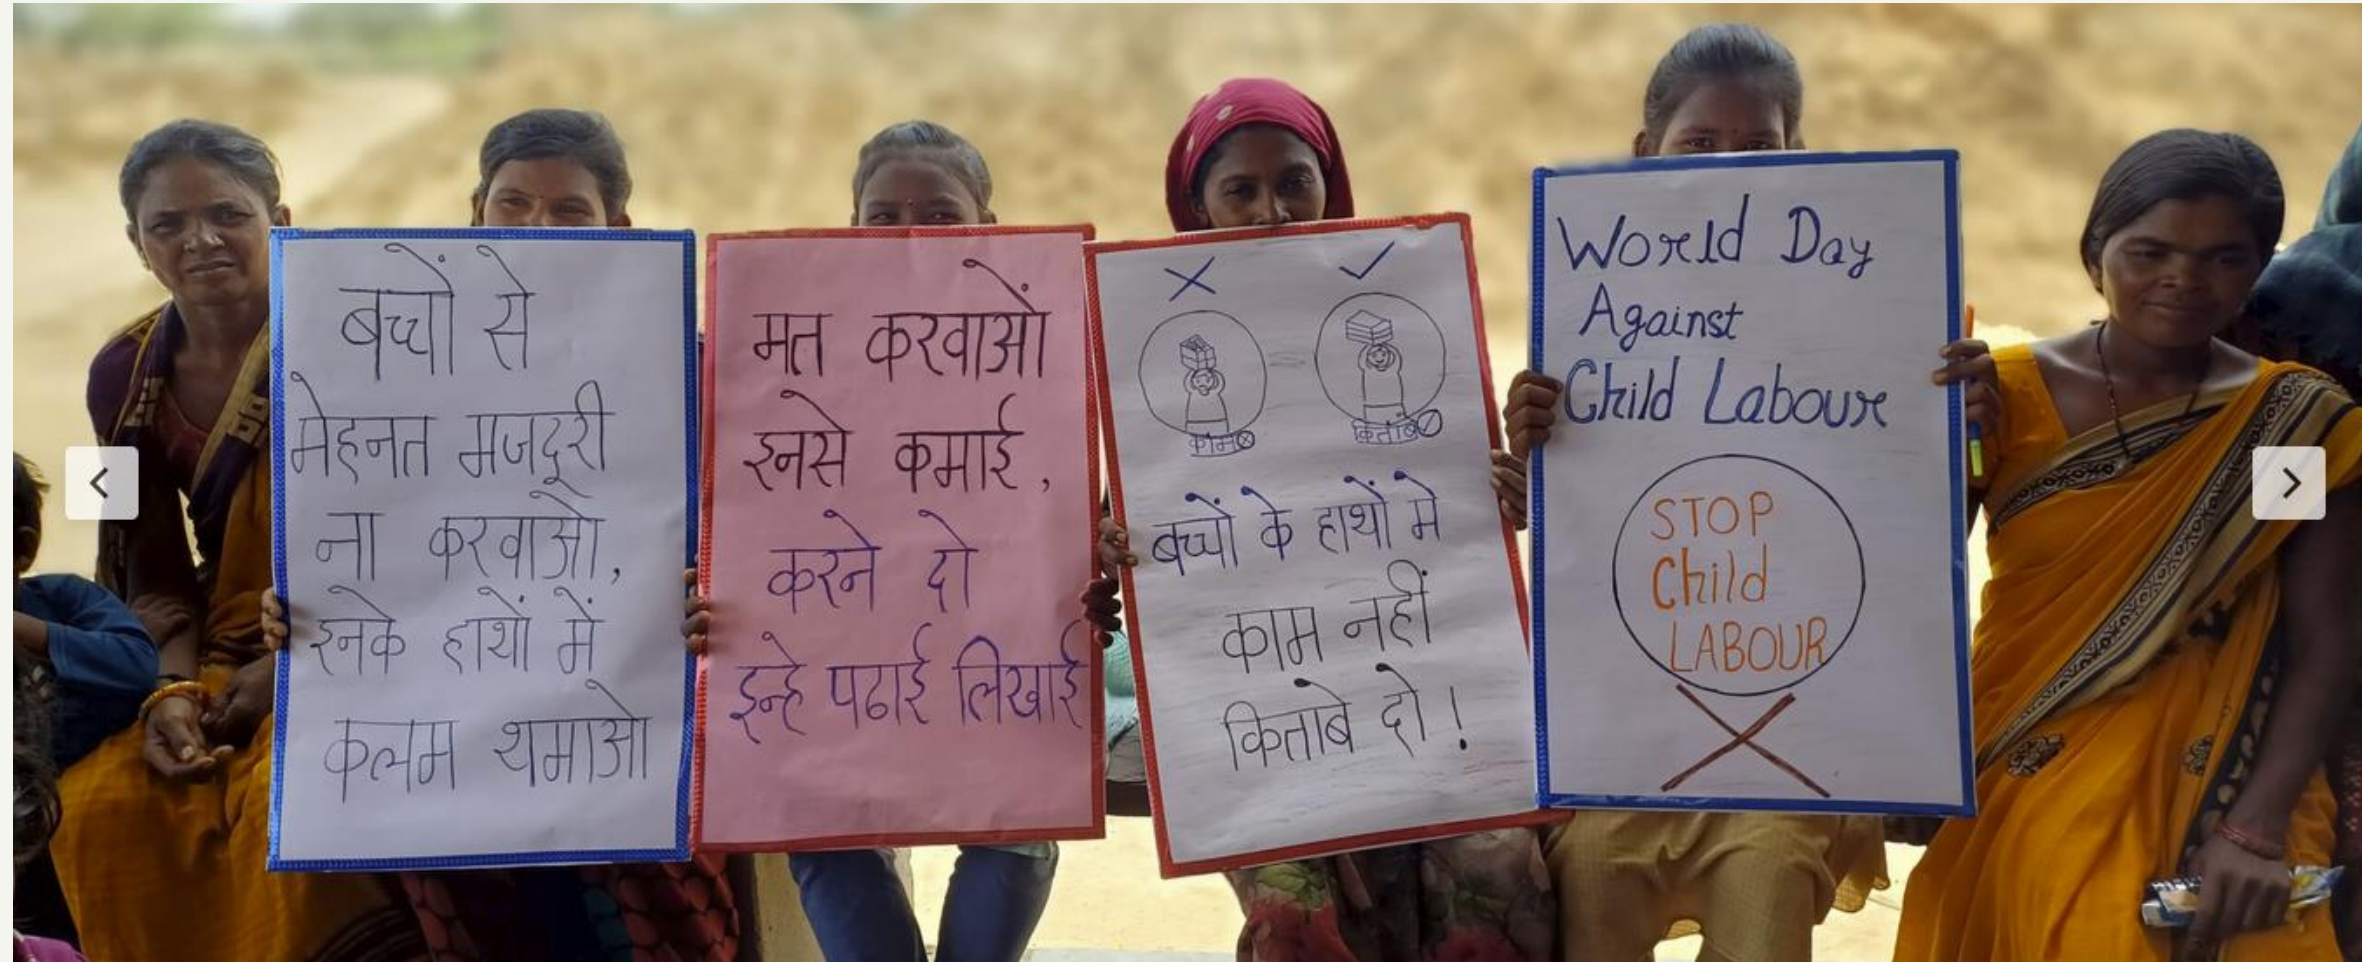 बच्चों से
मेहनत मजदूरी
ना करवाओ,
इनके हाथों में
कलम थमाओ
मत करवाओं
इनसे कमाई,
करने दो
इन्हे पढाई लिखाई
काम
किताब
बच्चों के हाथों मे
काम नहीं
किताबे दो!
World Day
Against
Child Labour
STOP
Child
LABOUR